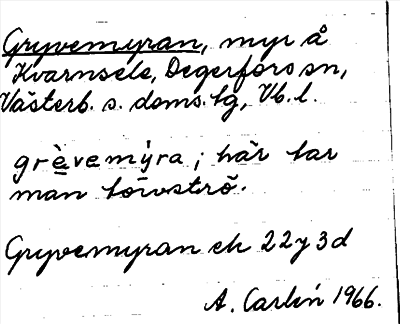 Gryvemyran, myr å
Kvarnsele, Degerfors sn,
Västerb. s. doms. tg, Vb. l.
grèvemýra; här tar
man torvströ.
Gryvemyran ek 22y3d
A. Carlén 1966.